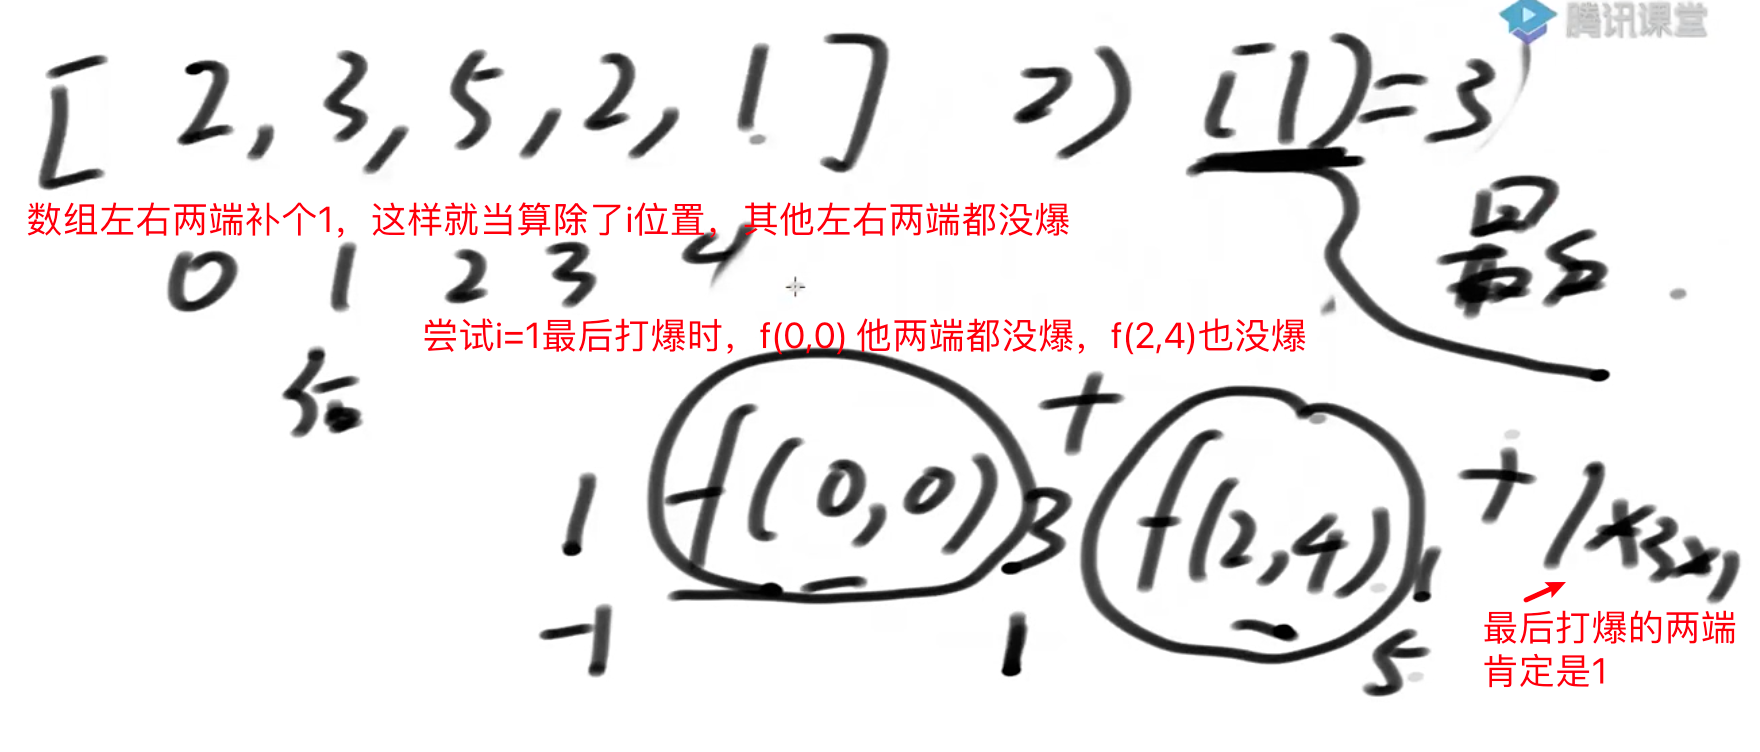 腾讯课堂
[ 2, 3, 5, 2, 1 ] 2) (1)=3
数组左右两端补个1，这样就当算除了i位置，其他左右两端都没爆
0 1 2 3 4 最后
尝试i=1最后打爆时，f(0,0) 他两端都没爆，f(2,4)也没爆
后
1 f(0,0) 3 + f(2,4) 1 + 1×3×1
-1 1 5
最后打爆的两端
肯定是1